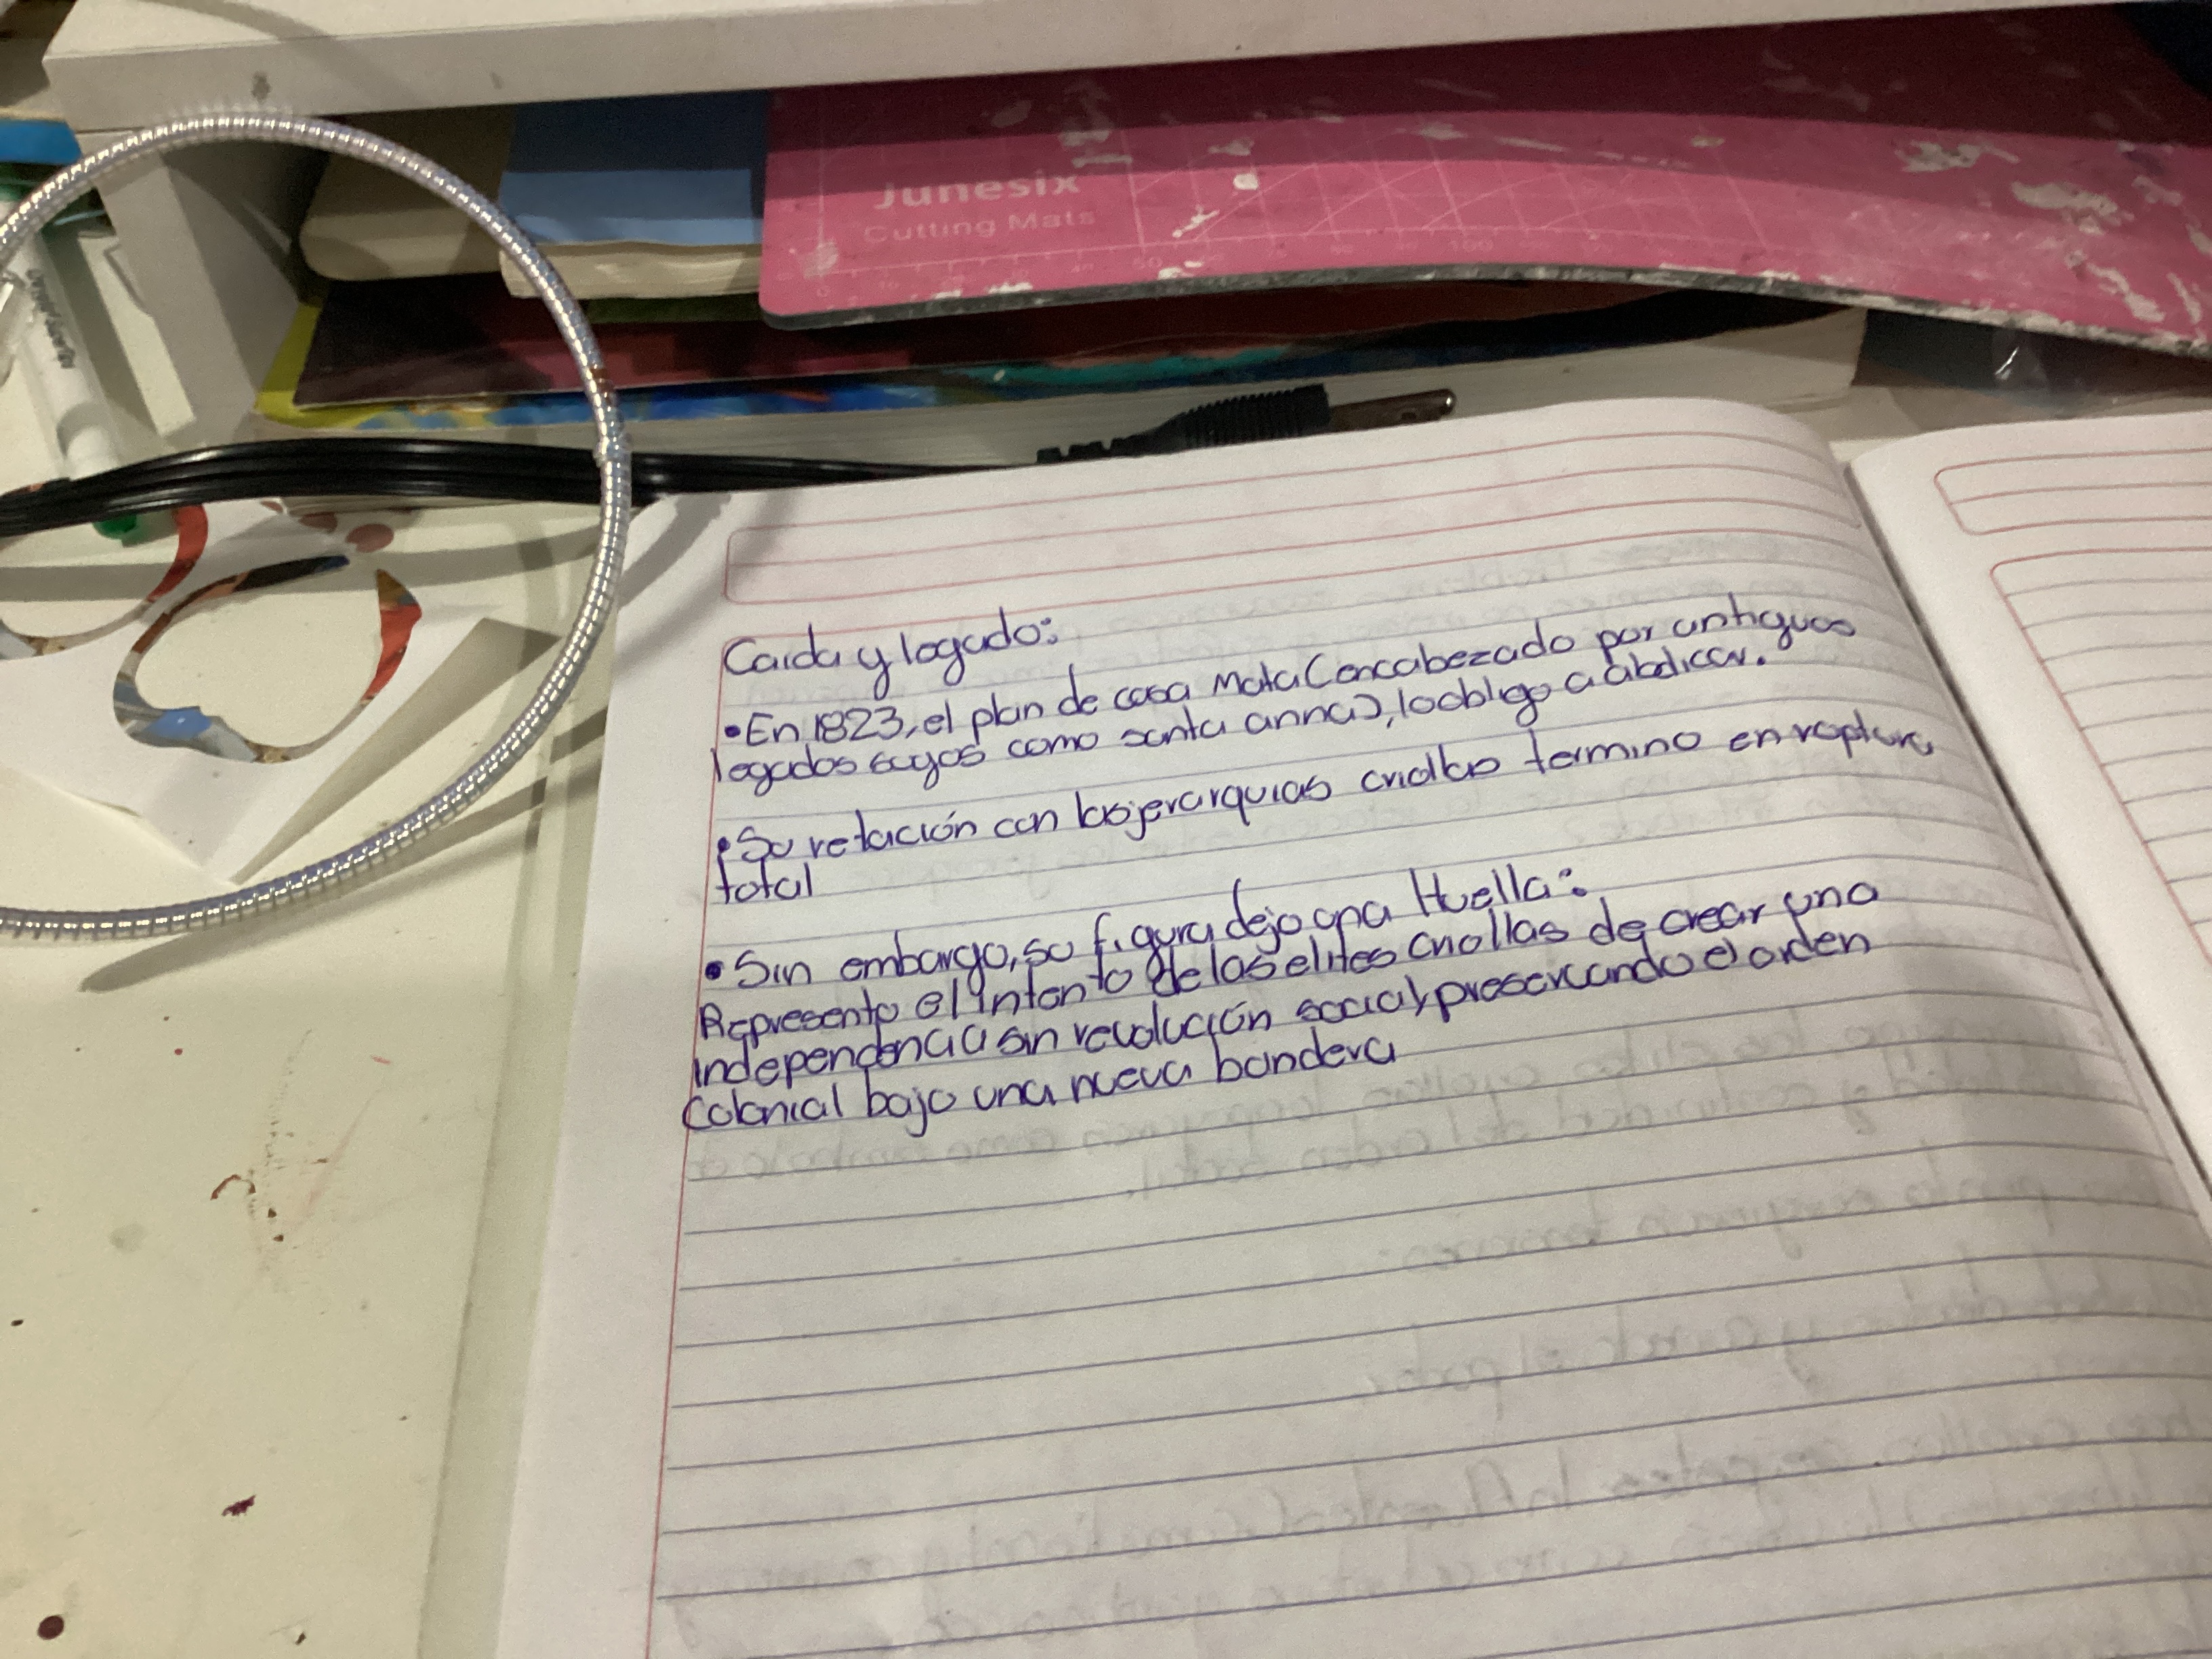 Junesix
Cutting Mats
Caida y legado:
•En 1823, el plan de casa Mata (encabezado por antiguos
legados suyos como santa anna), lo obligo a abdicar.
•Su relación con las jerarquias criollas termino en ruptura
total
•Sin embargo, su figura dejo una Huella:
Represento el intento de las elites criollas de crear una
independencia sin revolución social, preservando el orden
Colonial bajo una nueva bandera